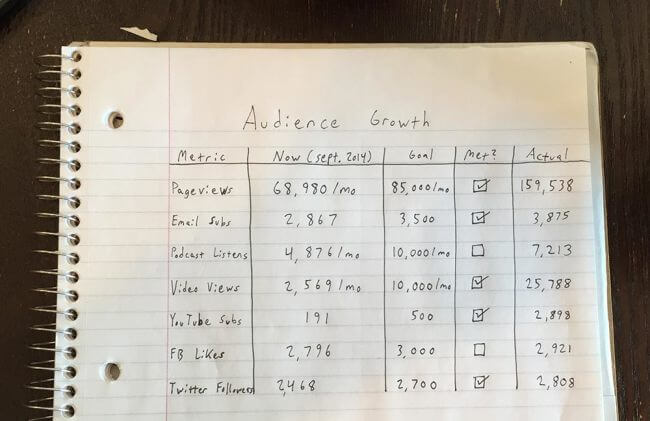 Audience Growth
Metric Now (sept. 2014) Goal Met? Actual
Pageviews 68,980/mo 85,000/mo ☑ 159,538
Email Subs 2,867 3,500 ☑ 3,875
Podcast Listens 4,876/mo 10,000/mo ☐ 7,213
Video Views 2,569/mo 10,000/mo ☑ 25,788
YouTube Subs 191 500 ☑ 2,898
FB Likes 2,796 3,000 ☐ 2,921
Twitter Followers 2,468 2,700 ☑ 2,808